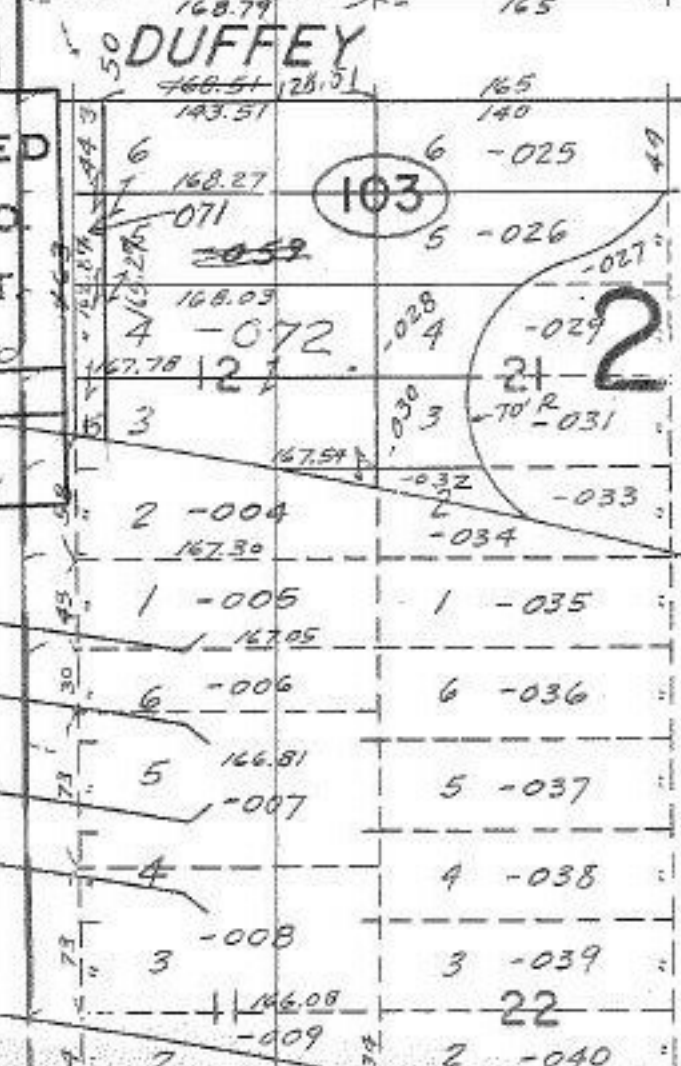 168.79 165
50 DUFFEY
168.51 28.51 165
143.51 140
ED 44 6 6 -025 49
168.27 103
071
-059 5 -026
-027
168.03
4 -072 -028 4 -029 2
167.78 12 21
3 -030 3 70' R -031
167.54 -032
2 -004 2 -033
-034
167.30
43 1 -005 1 -035
167.05
30 6 -006 6 -036
166.81
73 5 -007 5 -037
4 4 -038
-008
73 3 3 -039
11 166.08 22
-009
2 2 -040